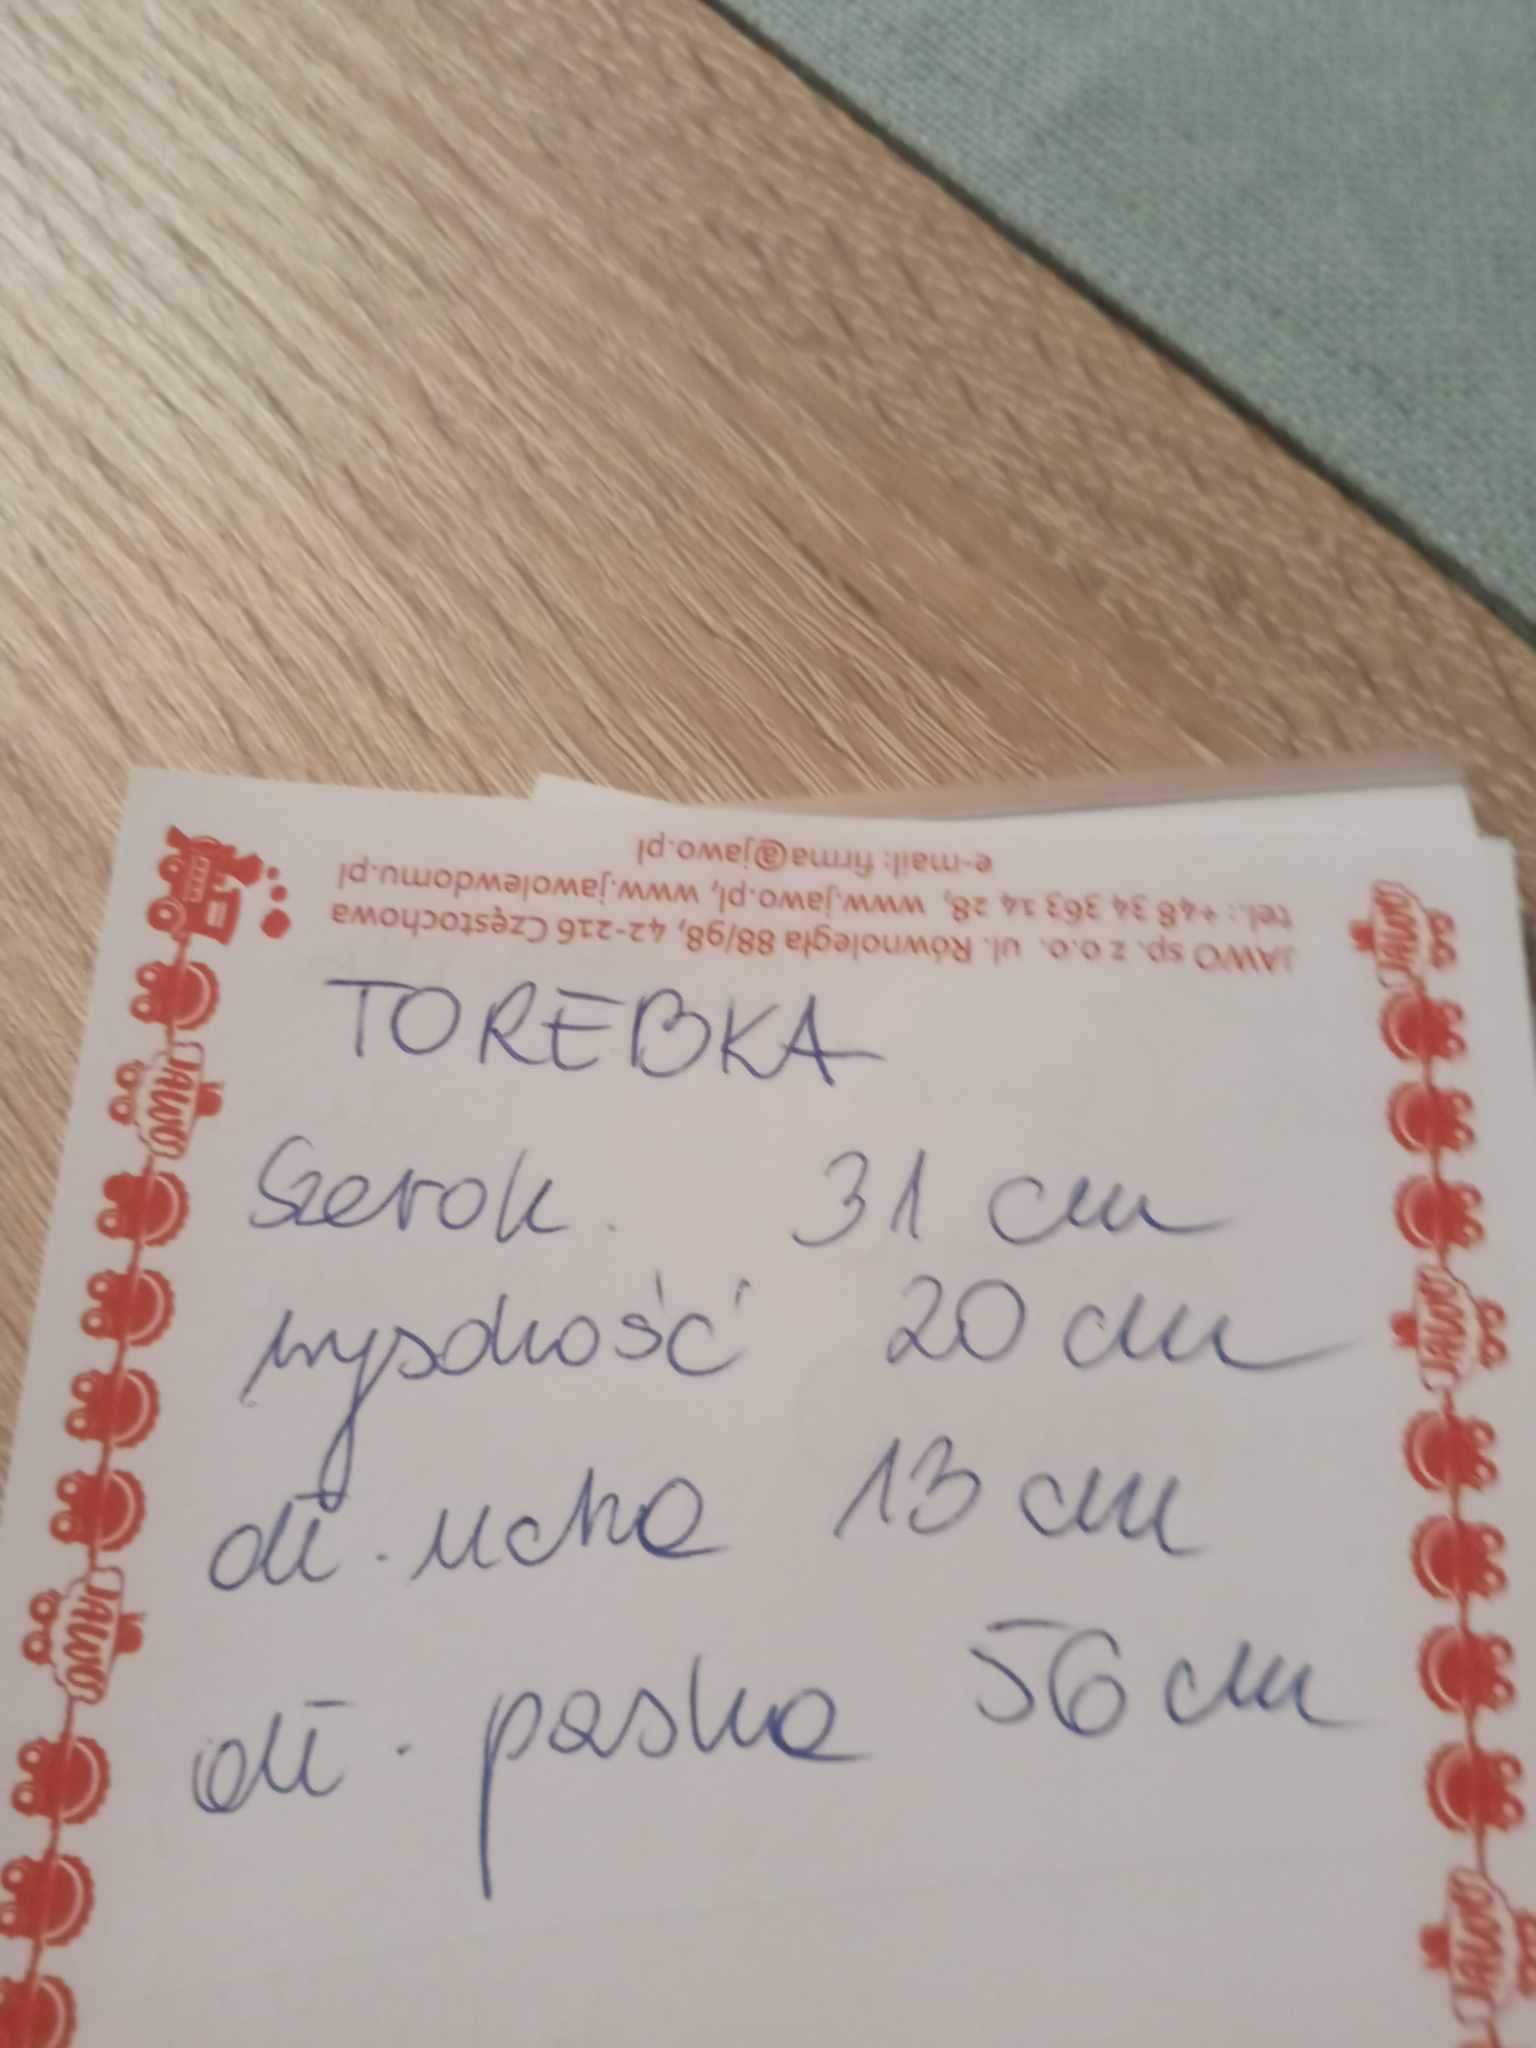 JAWO sp. z o.o. ul. Równoległa 88/98, 42-216 Częstochowa
tel.: +48 34 363 14 28, www.jawo.pl, www.jawolewdomu.pl
e-mail: firma@jawo.pl
TOREBKA
Szerok. 31 cm
wysokość 20 cm
dł. ucha 13 cm
dł. paska 56 cm
JAWO
JAWO
JAWO
JAWO
JAWO